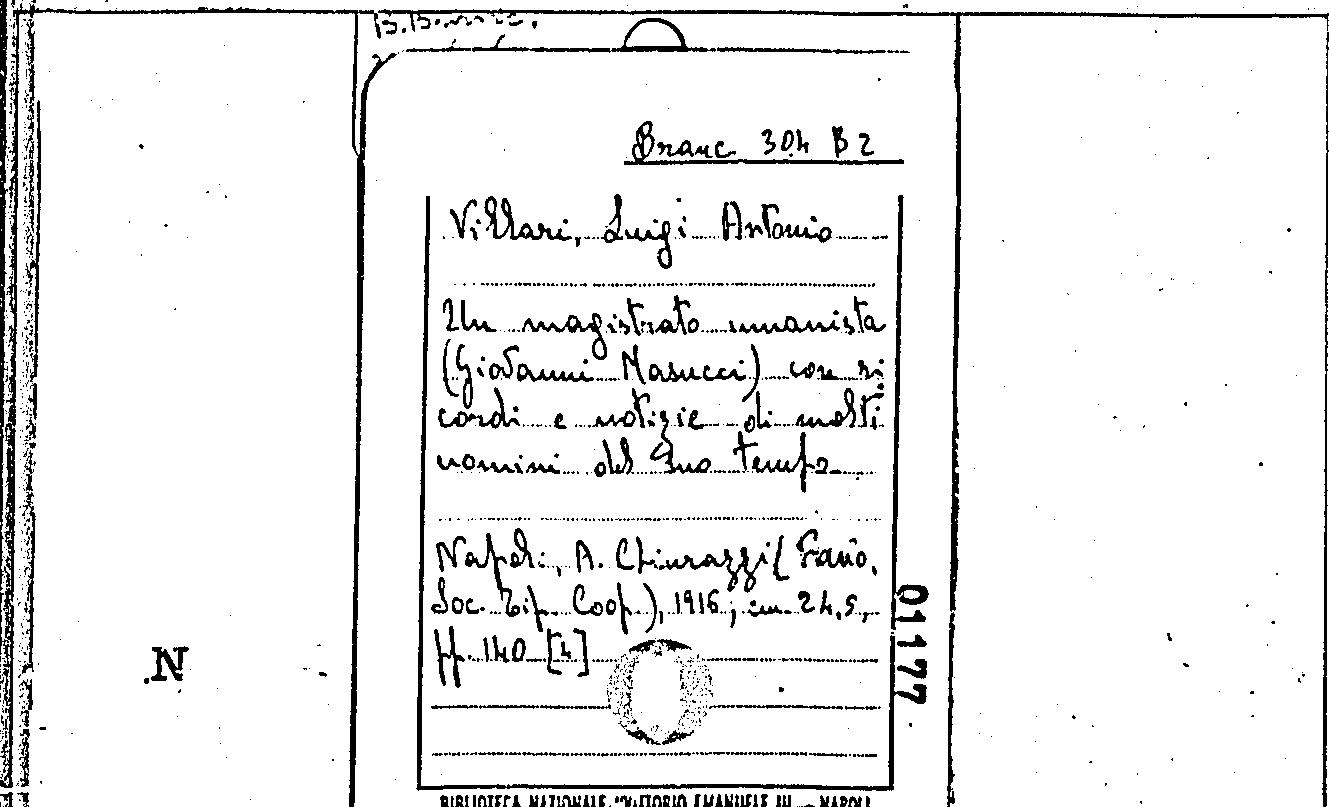 Branc. 304 B 2
Villari, Luigi Antonio
Un magistrato umanista
(Giovanni Masucci) con ri
cordi e notizie di molti
uomini del suo tempo
Napoli, A. Chiurazzi (Fano,
Soc. Tip. Coop.), 1916; cm. 24,5,
pp. 140 [4]
01177
N
BIBLIOTECA NAZIONALE "VITTORIO EMANUELE III" - NAPOLI